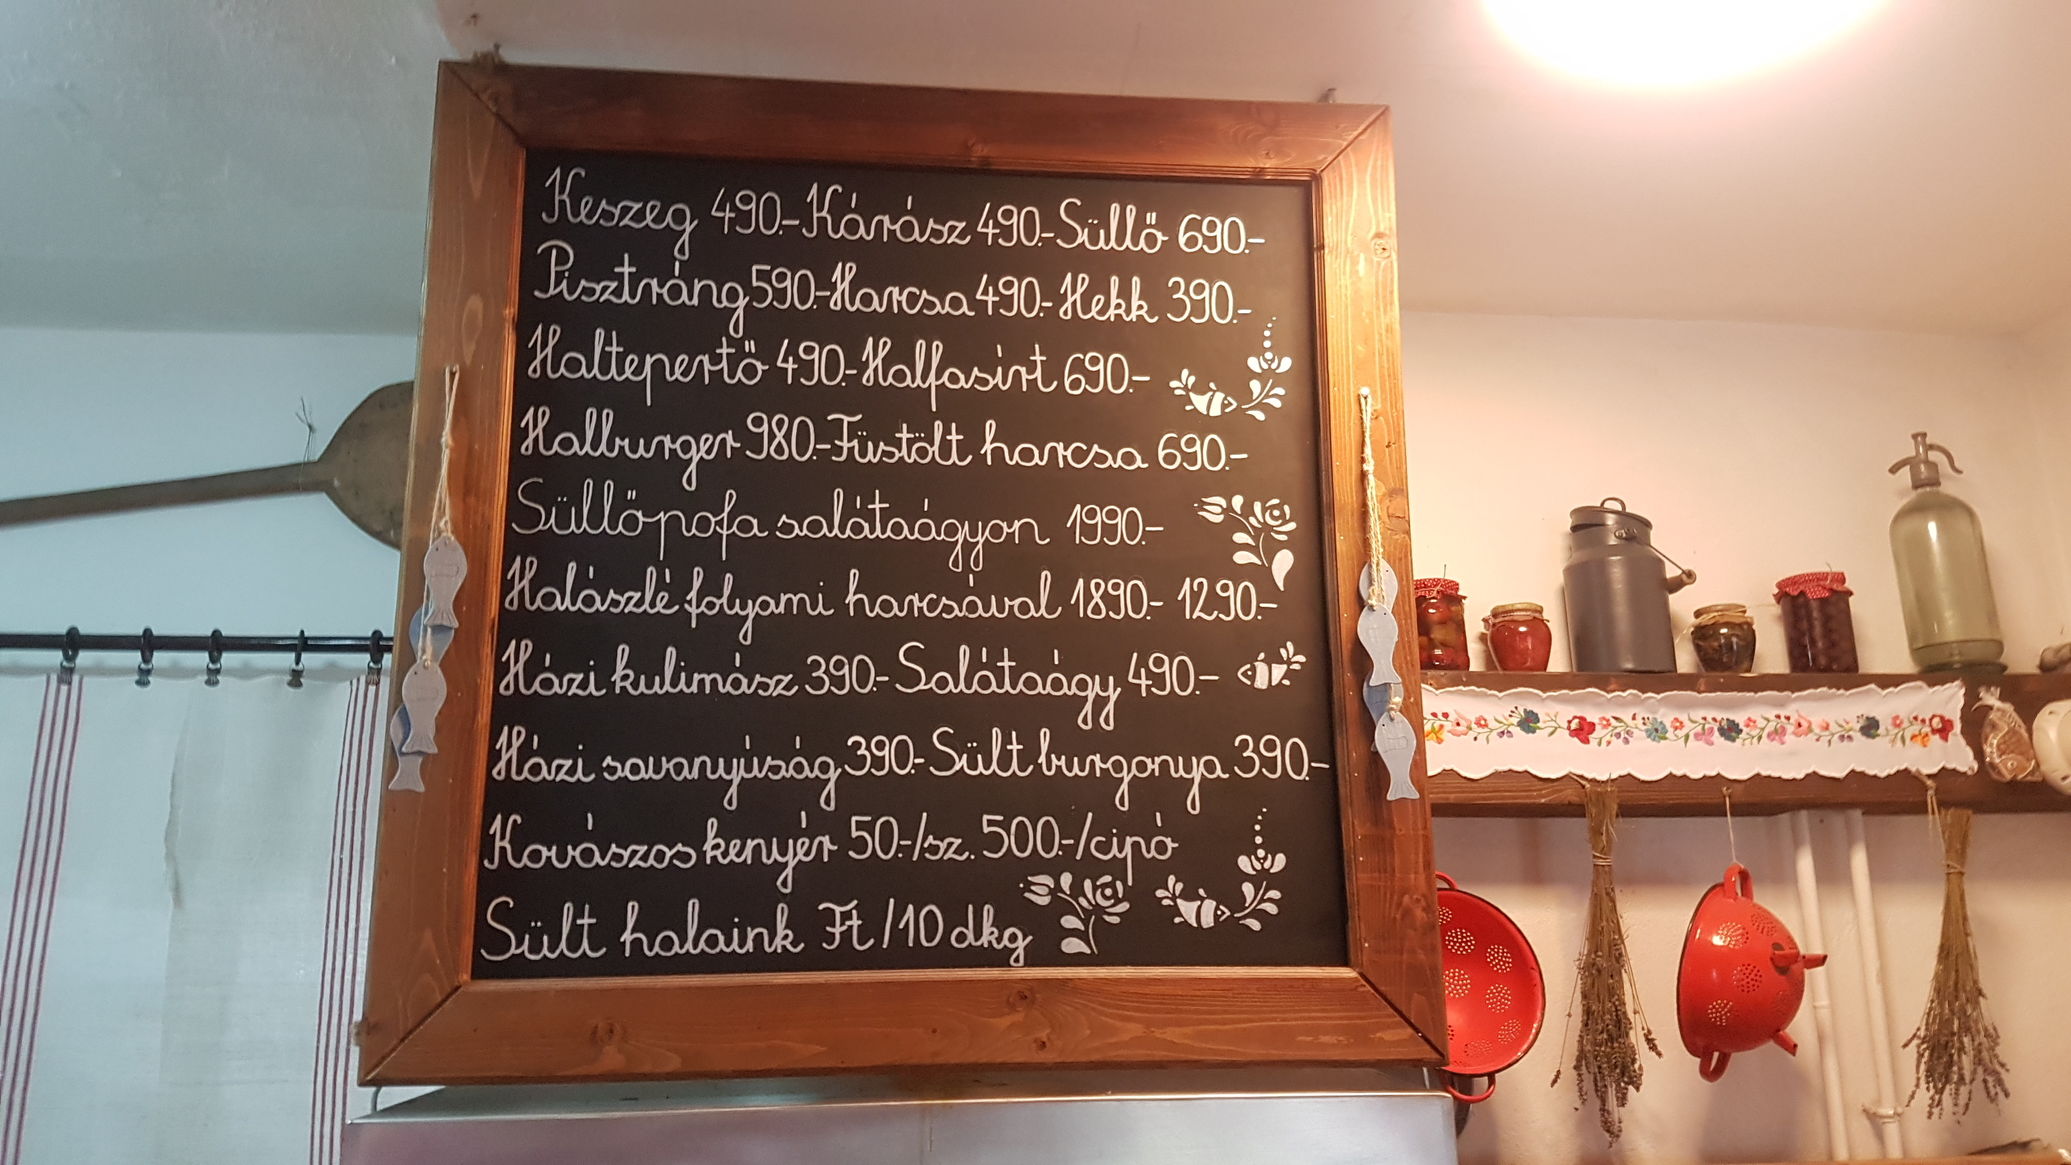 Keszeg 490.- Kárász 490.- Süllő 690.-
Pisztráng 590.- Harcsa 490.- Hekk 390.-
Haltepertő 490.- Halfasírt 690.-
Halburger 980.- Füstölt harcsa 690.-
Süllőpofa salátaágyon 1990.-
Halászlé folyami harcsával 1890.- 1290.-
Házi kulimász 390.- Salátaágy 490.-
Házi savanyúság 390.- Sült burgonya 390.-
Kovászos kenyér 50.-/sz. 500.-/cipó
Sült halaink Ft /10 dkg